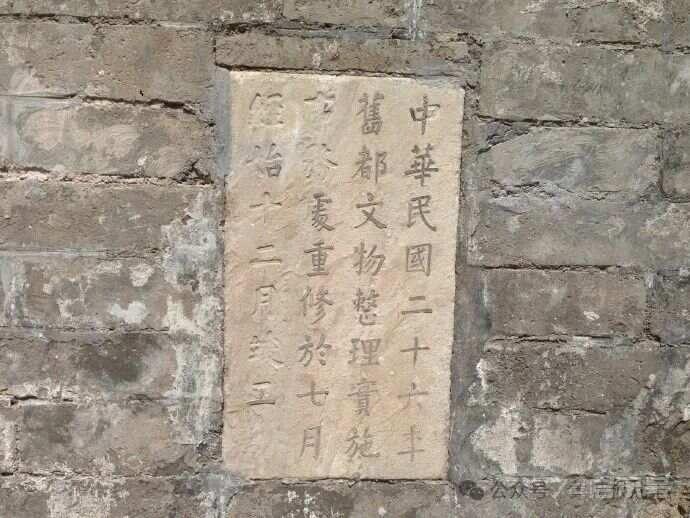 中華民國二十六年
舊都文物整理實施
事務處重修於七月
經始十二月竣工
公众号